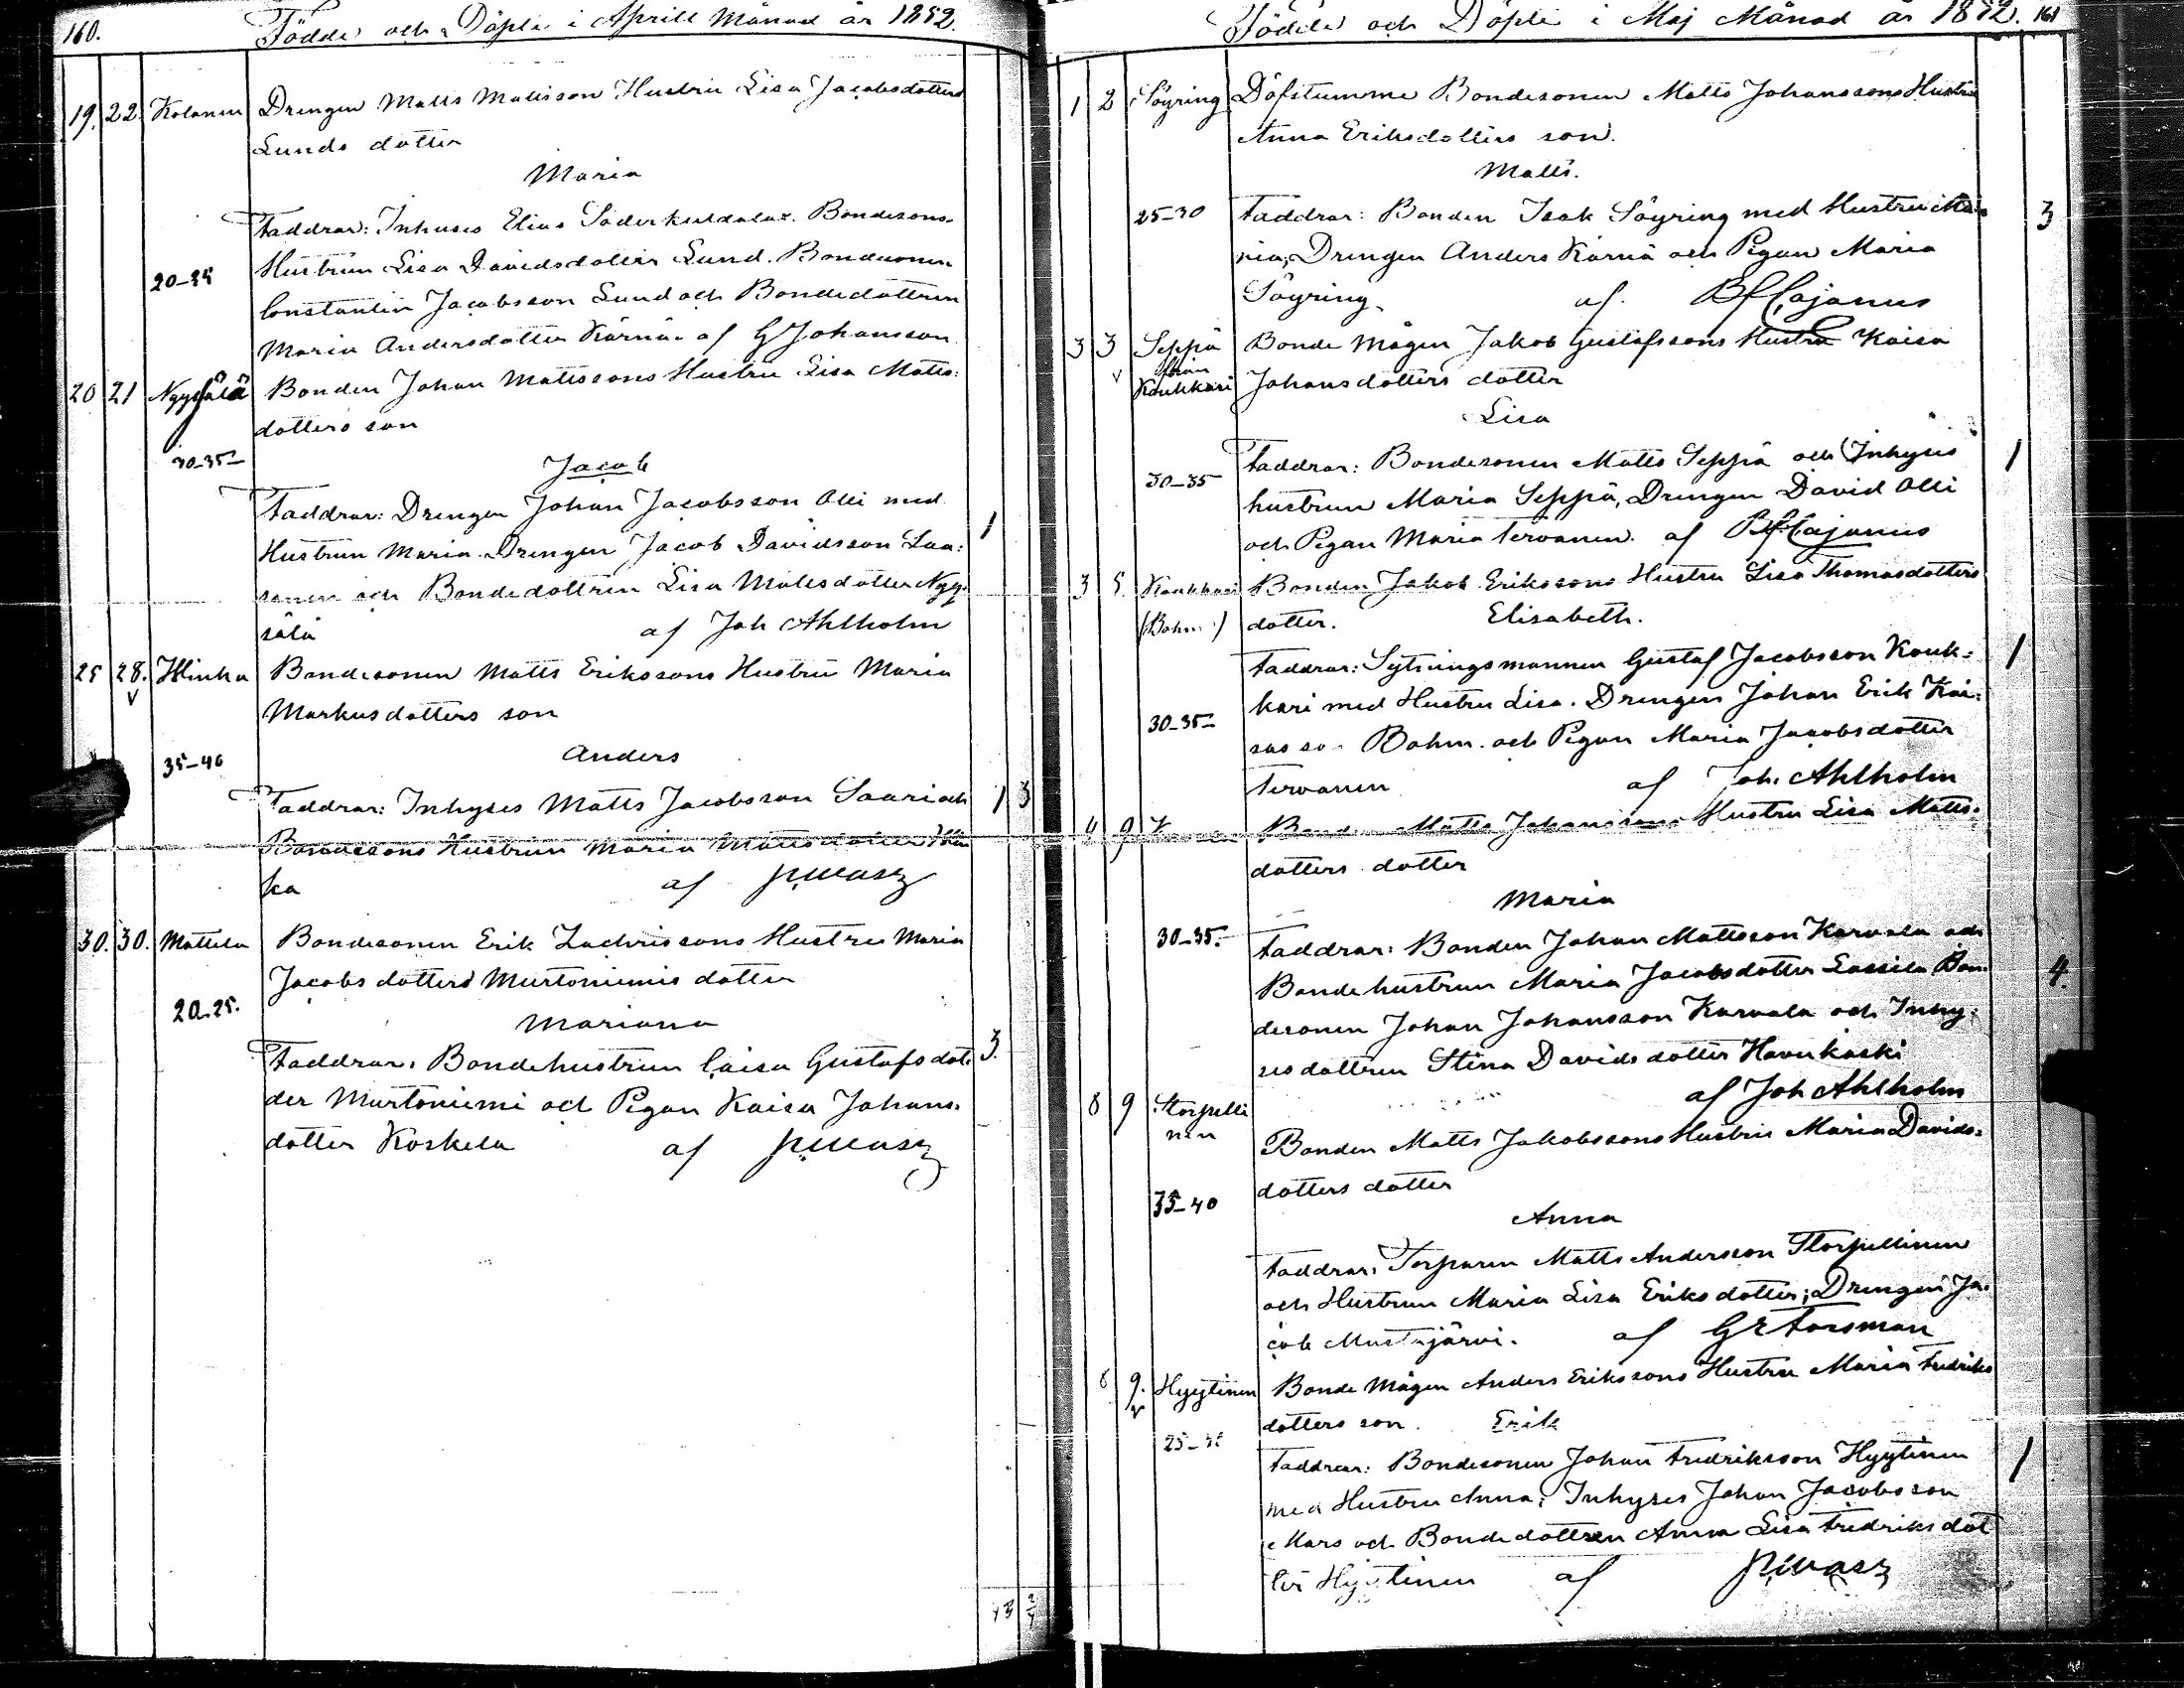 160. Födde och Döpte i Aprill Månad år 1852.
19. 22. Kolanen Drengen Matts Mattsson Hustru Lisa Jacobsdotters
Lunds dotter
Maria
Faddrar: Inhuses Elias Bondesons
20-25 Hustrun Lisa Davidsdotter Lund. Bondesonen
Constantin Jacobsson Lund och Bondedottren
Maria Andersdotter Kärnä. af G Johansson
20 21 Nygsälä Bonden Johan Mattssons Hustru Lisa Matts=
dotters son
30-35
Jacob
Faddrar: Drengen Johan Jacobsson Olli med
Hustrun Maria. Drengen Jacob Davidsson Laa= 1
sanen och Bondedottren Lisa Mattsdotter Nyg=
sälä af Joh Ahlholm
25 28. Hlinka Bondesonen Matts Erikssons Hustru Maria
Markusdotters son
35-40
Anders
Faddrar: Inhyses Matts Jacobsson Saari och 1 3
Bondesons Hustrun Maria Mattsdotter Hlin
ka af
30. 30. Mattila Bondesonen Erik Zachrissons Hustru Maria
Jacobsdotters Murtoniemis dotter
20-25.
Mariana
Faddrar: Bondehustrun Caisa Gustafsdot= 3.
der Murtoniemi och Pigan Kaisa Johans=
dotter Koskela af
Födde och Döpte i Maj Månad år 1852. 161
1 2 Söyring Döfstumme Bondesonen Matts Johanssons Hustru
Anna Eriksdotters son.
Matts.
25-30 Faddrar: Bonden Isak Söyring med Hustru Ma= 3
ria, Drengen Anders Kärnä och Pigan Maria
Söyring. af. Cajanus
3 3 Seppä Bonde Mågen Jakob Gustafssons Hustru Kaisa
från
Koukkari Johansdotters dotter
Lisa
30-35 Faddrar: Bondesonen Matts Seppä och Inhyses 1
hustrun Maria Seppä, Drengen David Olli
och Pigan Maria Tervanen. af Cajanus
3 5. Koukkari Bonden Jakob Erikssons Hustru Lisa Thomasdotters
(Bohm) dotter. Elisabeth.
Faddrar: Sytningsmannen Gustaf Jacobsson Kouk= 1
kari med Hustru Lisa. Drengen Johan Erik Kai=
30-35
sas son Bohm. och Pigan Maria Jacobsdotter
Tervanen af Joh. Ahlholm
4 9 Matts Johanssons Hustru Lisa Matts=
dotters dotter
Maria
30-35. Faddrar: Bonden Johan Mattsson Karvala och
Bondehustrun Maria Jacobsdotter Lassila Bon= 4.
desonen Johan Johansson Karvala och Inhy=
sesdottren Stina Davidsdotter Havukoski
af Joh Ahlholm
8 9 Storpelli
nen
Bonden Matts Jakobssons Hustru Maria Davids=
dotters dotter
35-40
Anna
Faddrar: Torparen Matts Andersson Storpellinen
och Hustrun Maria Lisa Eriksdotter; Drengen Ja=
cob Mustajärvi. af Forsman
8 9. Hyytinen Bonde Mågen Anders Erikssons Hustru Maria Fredriks
dotters son. Erik
25-30
Faddrar: Bondesonen Johan Fredriksson Hyytinen 1
med Hustru Anna; Inhyses Johan Jacobsson
Mars och Bondedottren Anna Lisa Fredriksdot
ter Hyytinen af